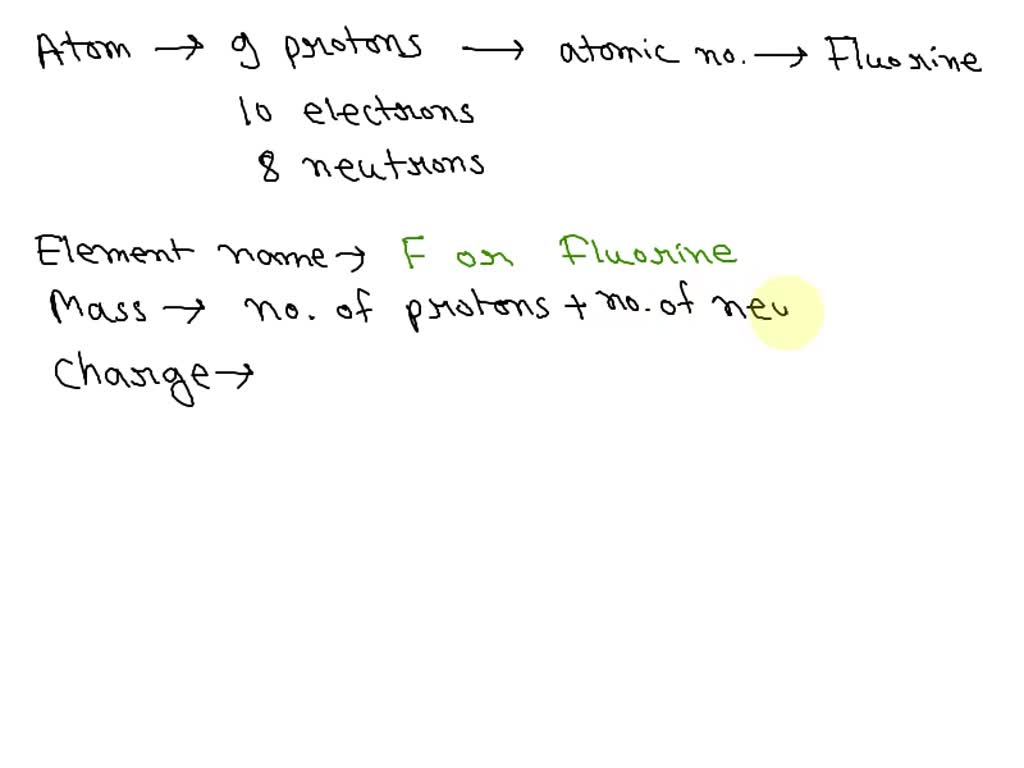 Atom → 9 protons → atomic no. → Fluorine
10 electrons
8 neutrons
Element name → F or Fluorine
Mass → no. of protons + no. of neu
Charge →